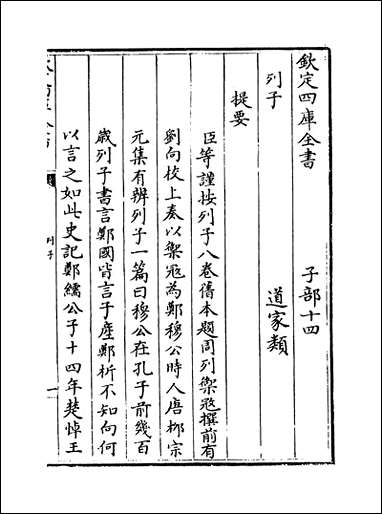 欽定四庫全書　子部十四
列子　道家類
提要
臣等謹按列子八卷舊本題周列禦寇撰前有
劉向校上奏以禦寇為鄭穆公時人唐柳宗
元集有辨列子一篇曰穆公在孔子前幾百
嵗列子書言鄭國皆言子産鄭析不知向何
以言之如此史記鄭繻公子十四年楚悼王
列子
一